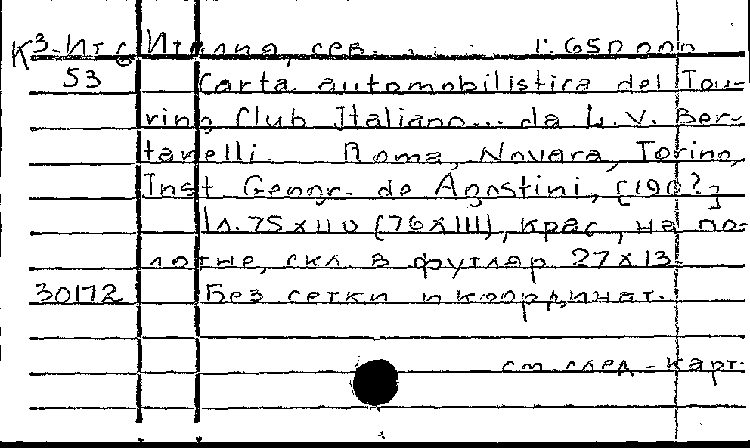 К3-Ит С Италия, сев. 1:650 000
53 Carta automobilistica del Tou-
ring Club Italiano... da L. V. Ber-
tarelli. Roma, Novara, Torino,
Inst Geogr. de Agostini, [190?]
1л. 75х110 (76х111), крас., на по-
лотне, скл. в футляр 27х13.
30172 Без сетки и координат.
см. след. карт.